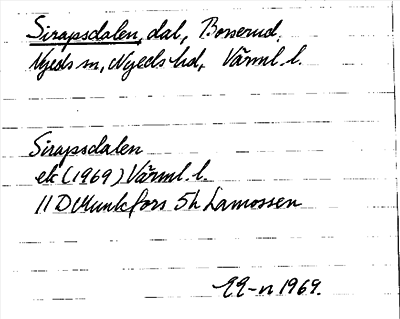 Sirapsdalen, dal, Bosserud,
Nyeds sn, Nyeds hd, Värml. l.
Sirapsdalen
ek (1969) Värml. l.
11 D Munkfors 5h Lamossen
1969.